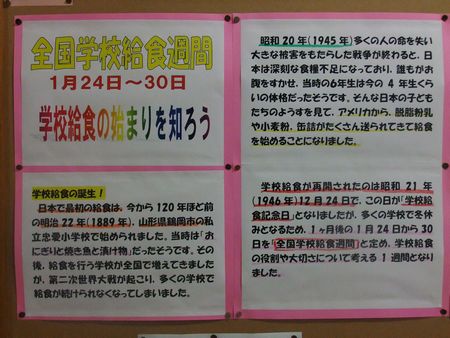 全国学校給食週間
1月24日～30日
学校給食の始まりを知ろう
学校給食の誕生！
日本で最初の給食は、今から120年ほど前
の明治22年(1889年)、山形県鶴岡市の私
立忠愛小学校で始められました。当時は「お
にぎりと焼き魚と漬け物」だったそうです。その
後、給食を行う学校が全国で増えてきました
が、第二次世界大戦が起こり、多くの学校で
給食が続けられなくなってしまいました。
昭和20年(1945年)多くの人の命を失い
大きな被害をもたらした戦争が終わると、日
本は深刻な食糧不足になっており、誰もがお
腹をすかせ、当時の6年生は今の4年生くら
いの体格だったそうです。そんな日本の子ども
たちのようすを見て、アメリカから、脱脂粉乳
や小麦粉、缶詰がたくさん送られてきて給食
を始めることになりました。
学校給食が再開されたのは昭和21年
(1946年)12月24日で、この日が「学校給
食記念日」となりましたが、多くの学校で冬休
みとなるため、1ヶ月後の1月24日から30
日を「全国学校給食週間」と定め、学校給食
の役割や大切さについて考える1週間となり
ました。